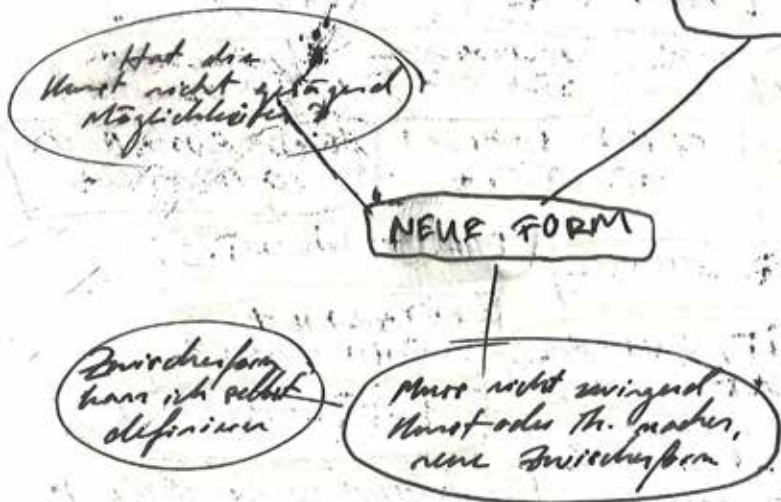 Hat die
Kunst nicht genügend
Möglichkeiten?
NEUE FORM
Zwischenform
kann ich selbst
definieren
Muss nicht zwingend
Kunst oder Th. machen,
neue Zwischenform